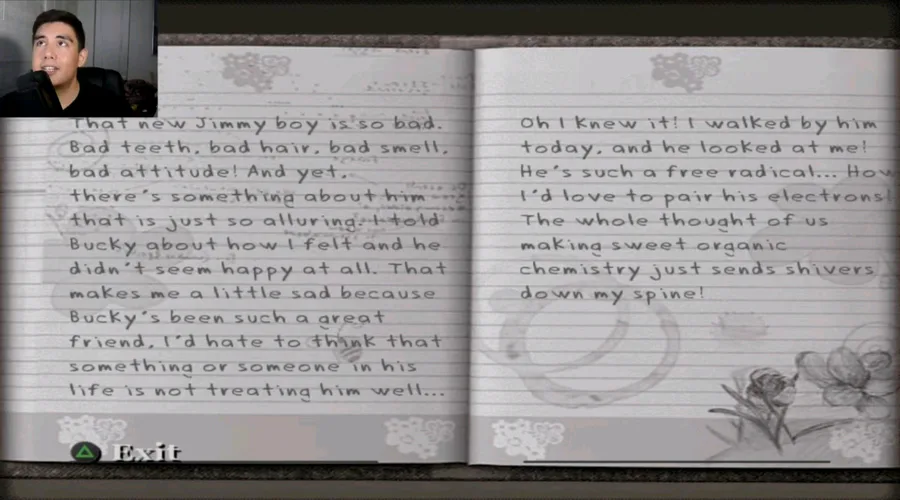 That new Jimmy boy is so bad.
Bad teeth, bad hair, bad smell,
bad attitude! And yet,
there's something about him
that is just so alluring. I told
Bucky about how I felt and he
didn't seem happy at all. That
makes me a little sad because
Bucky's been such a great
friend, I'd hate to think that
something or someone in his
life is not treating him well...
Oh I knew it! I walked by him
today, and he looked at me!
He's such a free radical... How
I'd love to pair his electrons!
The whole thought of us
making sweet organic
chemistry just sends shivers
down my spine!
Exit